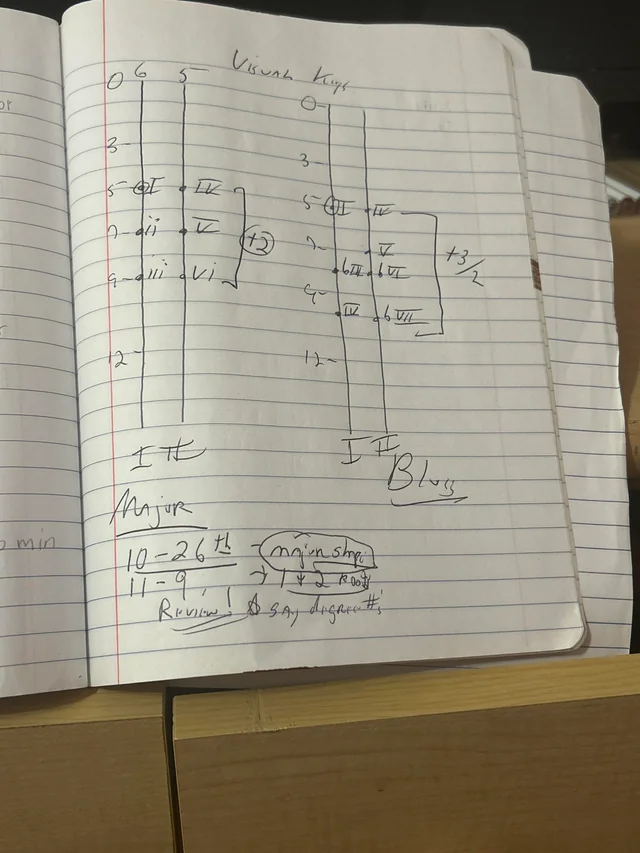 Visual Keys
0 6 5
3
5 I IV
7 ii V +2
9 iii vi
12
I II
0
3
5 I IV
7 V +3/2
bIII bVI
9 IV bVII
12
I II
Blues
Major
10-26th - major shape
11-9 → 1 & 2 Roots
Review! & say degree #'s
min